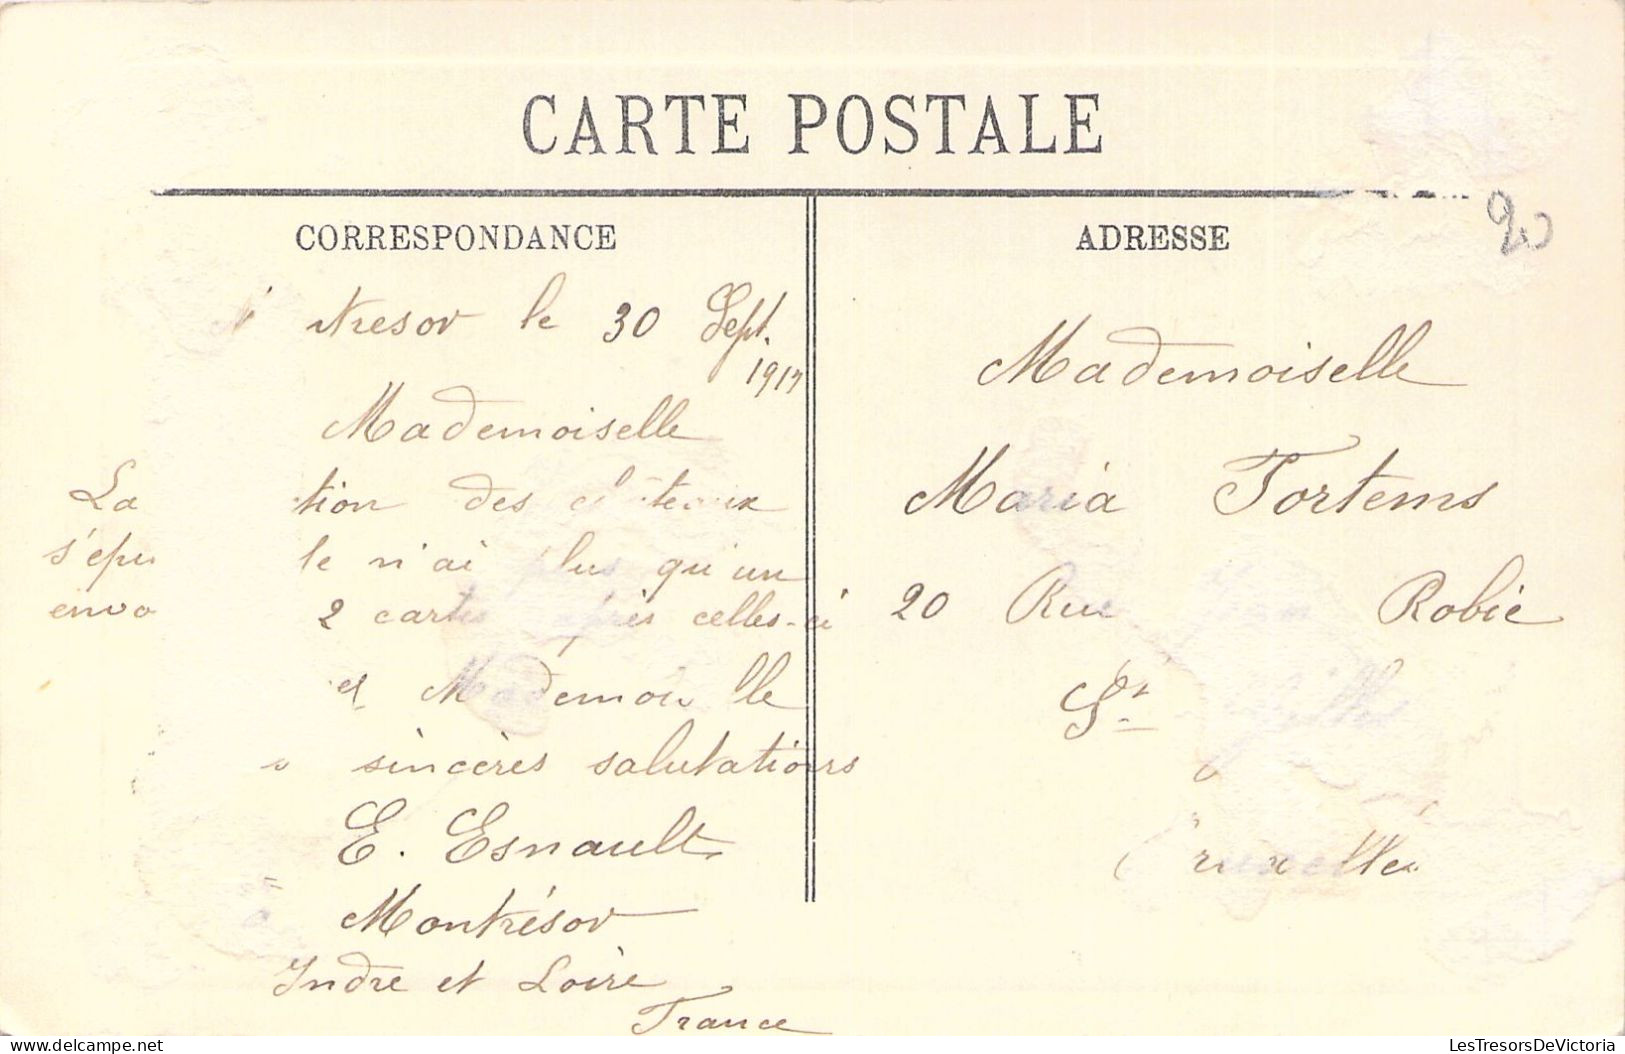 CARTE POSTALE
20
CORRESPONDANCE
tresor le 30 Sept.
Mademoiselle
La tion des
s'épu Je n'ai plus qu'un
envo 2 cartes après celles-ci
Mademoi lle
sincères salutations
E. Esnault
Montrésor
Indre et Loire
France
ADRESSE
Mademoiselle
Maria Tortems
20 Rue Robie
St
LesTresorsDeVictoria